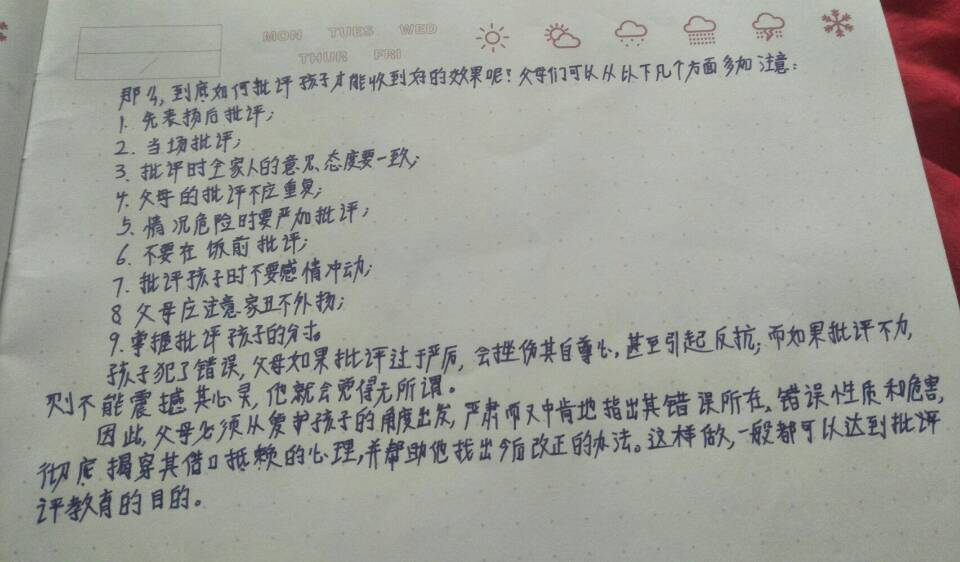 MON TUES WED
THUR FRI
那么,到底如何批评孩子才能收到好的效果呢?父母们可以从以下几个方面多加注意:
1. 先表扬后批评;
2. 当场批评;
3. 批评时全家人的意见、态度要一致;
4. 父母的批评不应重复;
5. 情况危险时要严加批评;
6. 不要在饭前批评;
7. 批评孩子时不要感情冲动;
8 父母应注意家丑不外扬;
9. 掌握批评孩子的分寸。
孩子犯了错误,父母如果批评过于严厉,会挫伤其自尊心,甚至引起反抗;而如果批评不力,
则不能震撼其心灵,他就会觉得无所谓。
因此,父母必须从爱护孩子的角度出发,严肃而又中肯地指出其错误所在、错误性质和危害,
彻底揭穿其借口抵赖的心理,并帮助他找出今后改正的办法。这样做,一般都可以达到批评
评教育的目的。